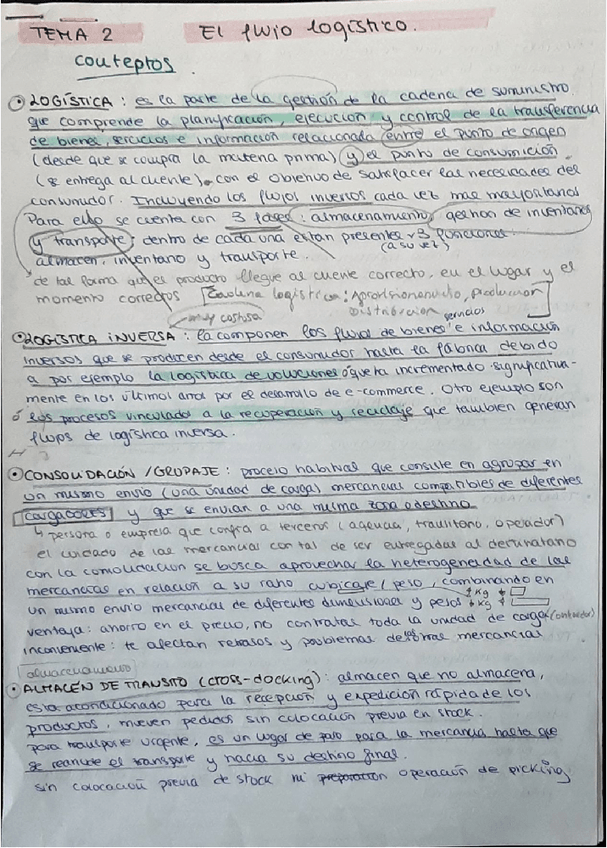 TEMA 2 El flujo logístico.
conceptos.
LOGÍSTICA: es la parte de la gestión de la cadena de suministro
que comprende la planificación, ejecución y control de la transferencia
de bienes, servicios e información relacionada entre el punto de origen
(desde que se compra la materia prima) y el punto de consumición
(se entrega al cliente). con el objetivo de satisfacer las necesidades del
consumidor. Incluyendo los flujos inversos cada vez mas mayoritarios
Para ello se cuenta con 3 fases: almacenamiento, gestion de inventarios
y transporte; dentro de cada una estan presentes 3 funciones:
(a su vez)
almacen, inventario y transporte.
de tal forma que el producto llegue al cliente correcto, en el lugar y el
momento correctos Gasolina logística: Aprovisionamiento, producción
Distribución servicios
muy costosa
LOGÍSTICA INVERSA: la componen los flujos de bienes e información
inversos que se producen desde el consumidor hasta la fábrica debido
a por ejemplo la logística de voluciones ó que ha incrementado significativa-
mente en los últimos años por el desarrollo de e-commerce. Otro ejemplo son
ó los procesos vinculados a la recuperación y reciclaje que tambien generan
flujos de logística inversa.
CONSOLIDACIÓN / GRUPAJE: proceso habitual que consiste en agrupar en
un mismo envío (una unidad de carga) mercancías compatibles de diferentes
cargadores y que se envían a una misma zona o destino
persona o empresa que confía a terceros (agencia, transitario, operador)
el cuidado de las mercancías con tal de ser entregadas al destinatario
con la consolidación se busca aprovechar la heterogeneidad de las
mercancías en relación a su ratio cubicaje/peso, combinando en
un mismo envío mercancías de diferentes dimensiones y pesos
ventaja: ahorro en el precio, no contratas toda la unidad de carga (contenedor)
inconveniente: te afectan retrasos y problemas de otras mercancías
almacenamiento
ALMACÉN DE TRÁNSITO (CROSS-docking): almacen que no almacena,
esta acondicionado para la recepción y expedición rápida de los
productos, mueven pedidos sin colocación previa en stock.
para transporte urgente, es un lugar de paso para la mercancía hasta que
se reanude el transporte y hacia su destino final.
sin colocación previa de stock ni preparación operación de picking;